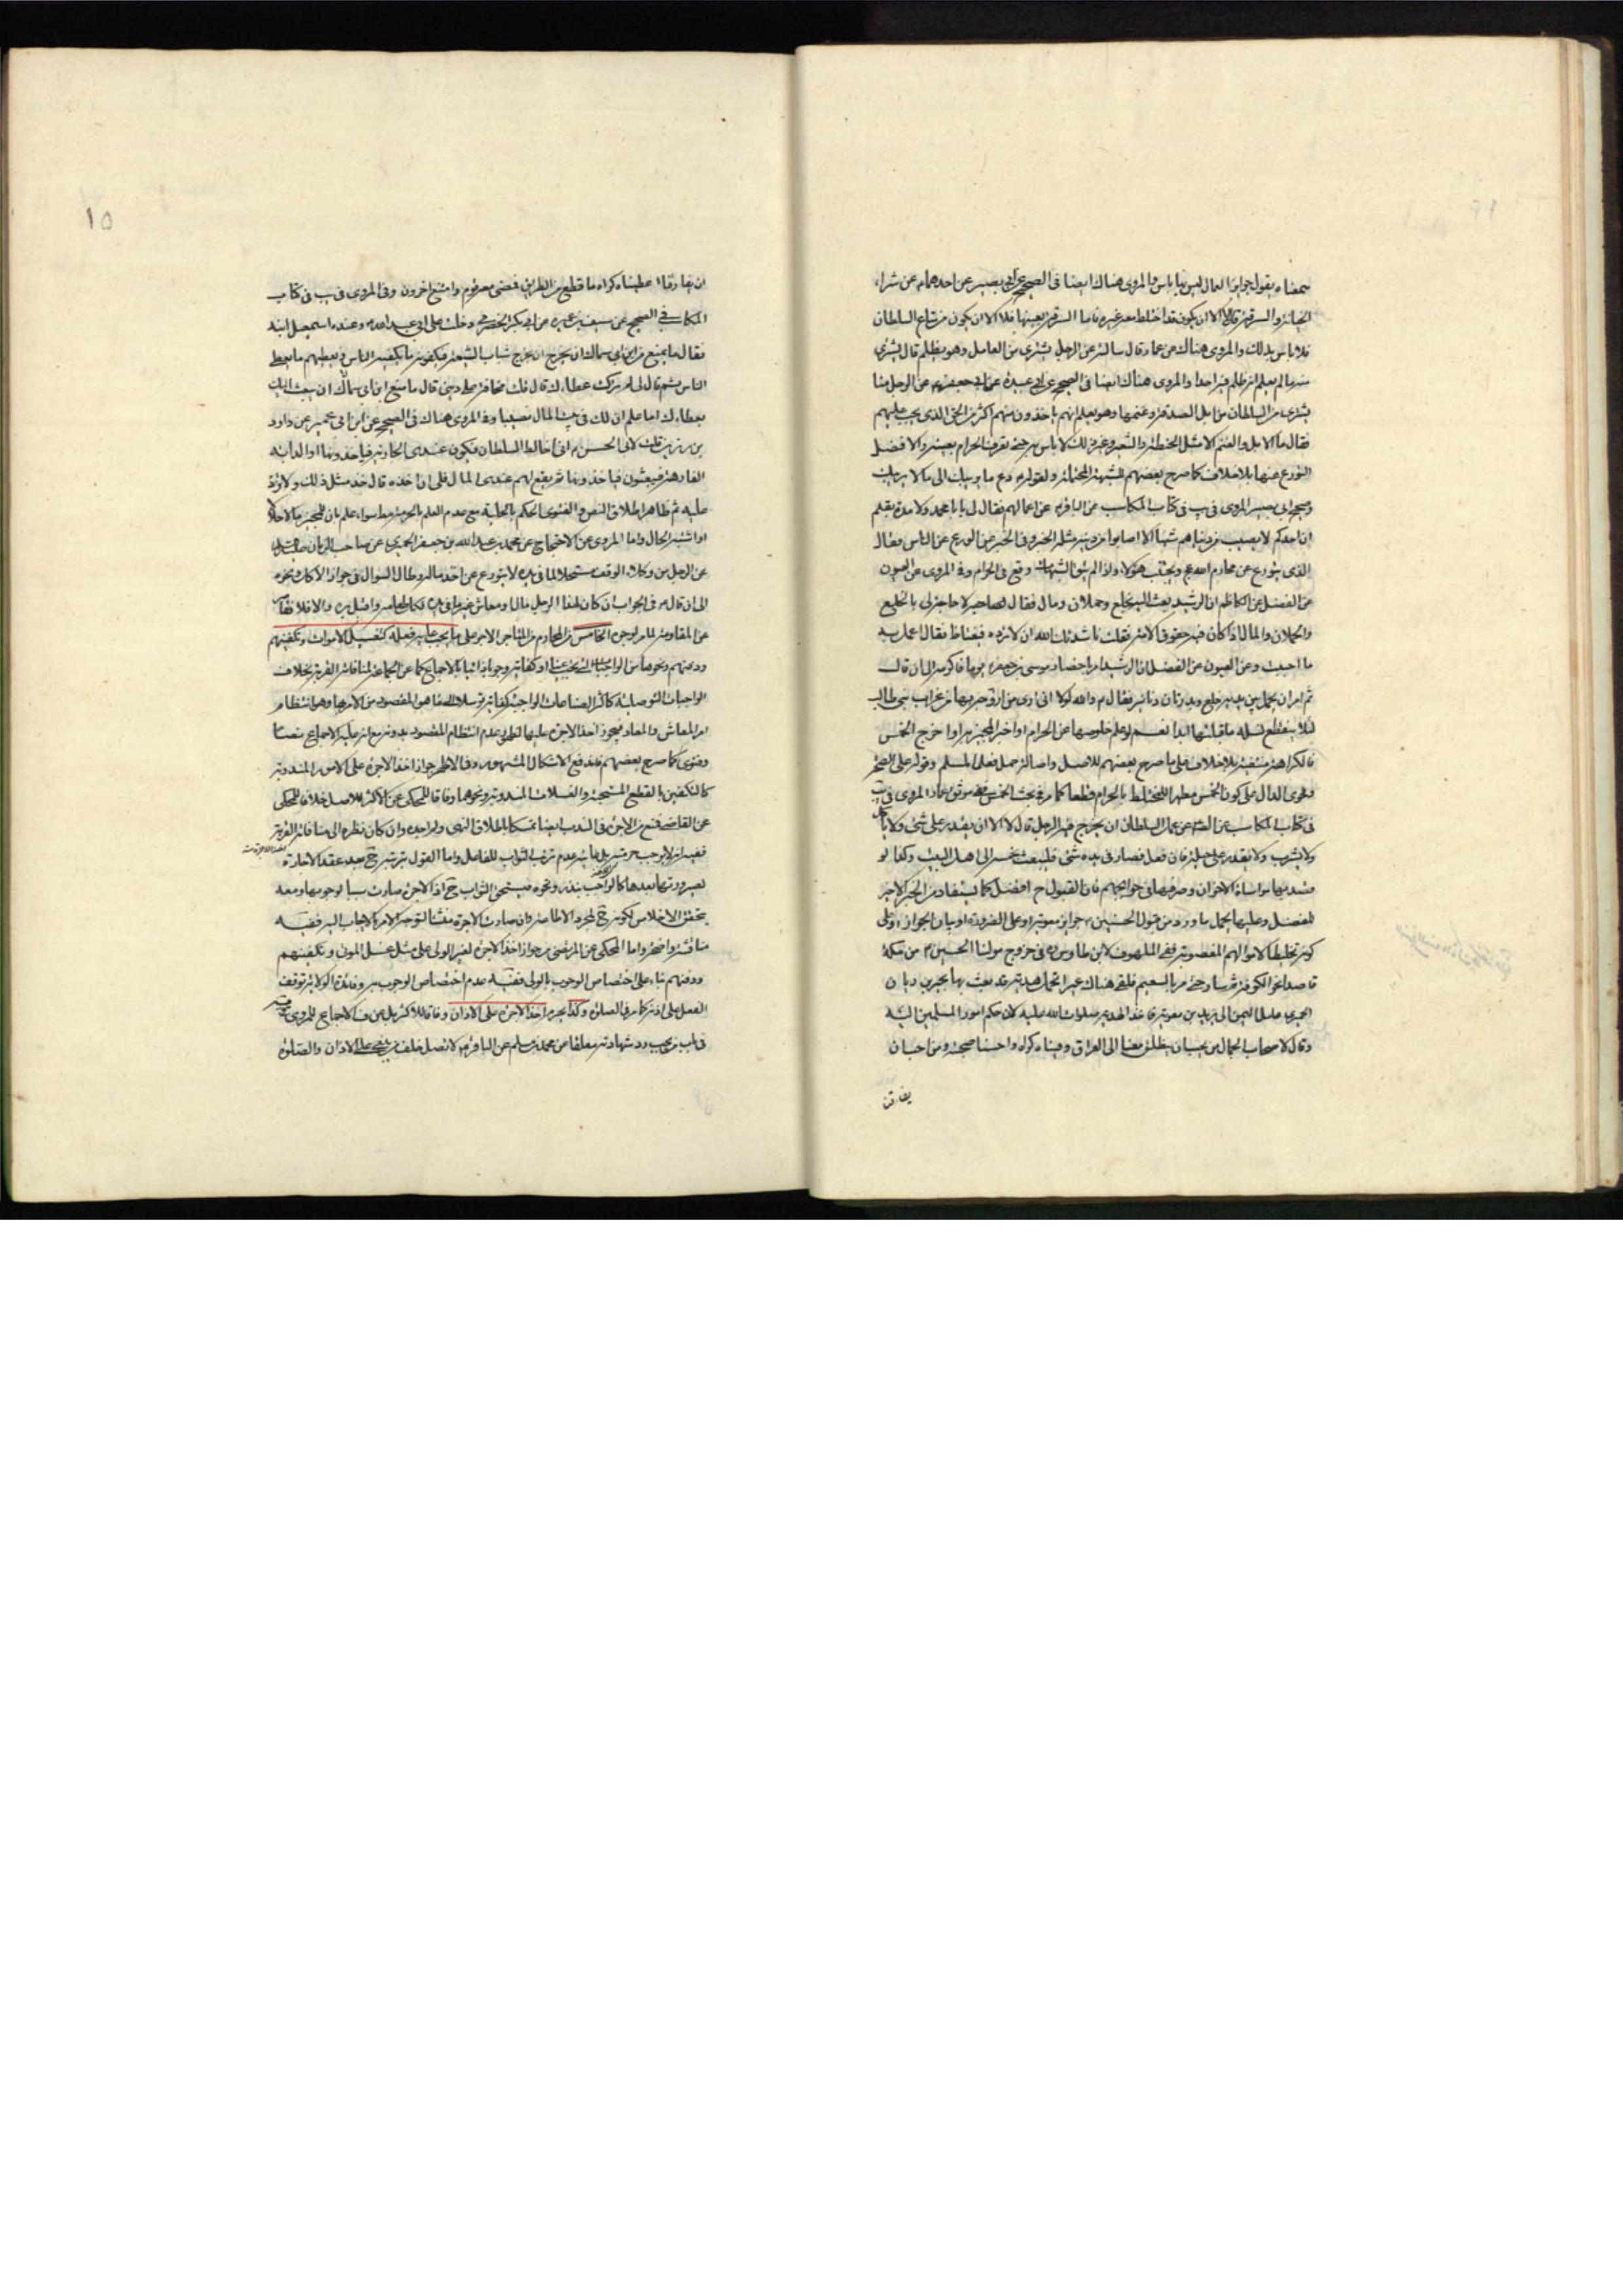 سمعناه يقول جوايز العمال ليس بها باس والمروى هناك ايضا فى الصحيح عن ابى بصير عن احدهما م عن شراء
الخيانة والسرقة قال لا الا ان يكون قد اختلط معه غيره فاما السرقة بعينها فلا الا ان يكون من متاع السلطان
فلا باس بذلك والمروى هناك عن عمار قال سالته عن الرجل يشترى من العامل وهو يظلم قال يشترى
منه ما لم يعلم انه ظلم فيه احدا والمروى هناك ايضا فى الصحيح عن ابى عبيدة عن ابى جعفر م عن الرجل منا
يشترى من السلطان من ابل الصدقة وغنمها وهو يعلم انهم ياخذون منهم اكثر من الحق الذى يجب عليهم
فقال ما الابل والغنم الا مثل الحنطة والشعير وغير ذلك لا باس به حتى تعرف الحرام بعينه والافضل
التورع عنها بلا خلاف كما صرح بعضهم للشبهة المحتملة ولقوله م دع ما يريبك الى ما لا يريبك
وصحيح ابى بصير المروى فى يب فى كتاب المكاسب عن الباقر م عن اعمالهم فقال لى يا با محمد ولا مدة بقلم
ان احدكم لا يصيب من دنياهم شيئا الا اصابوا من دينه مثله الخبر وفى الخبر عن الورع عن الناس فقال
الذى يتورع عن محارم الله عج ويجتنب هؤلاء واذا لم يتق الشبهات وقع فى الحرام وفى المروى عن العيون
عن الفضل عن الكاظم ان الرشيد بعث اليه بخلع وحملان ومال فقال لصاحبه لا حاجة لى بالخلع
والحملان والمال اذا كان فيه حقوق الامة فقلت ناشدتك الله ان لا ترده فيغتاظ فقال اعمل به
ما احببت وعن العيون عن الفضل ان الرشيد امر باحضار موسى بن جعفر م يوما فاكرمه الى ان قال
ثم امر ان يحمل بين يديه خلع وبدرتان دنانير فقال م والله لولا انى ارى من ازوجه بها من عزاب بنى طالب
لئلا ينقطع نسله ما قبلتها ابدا نعم لو علم خلوصها عن الحرام او اخبر المجيز به او اخرج الخمس
فالكراهة منتفية بلا خلاف على ما صرح بعضهم للاصل واصالة حمل فعل المسلم وقوله على الصحة
وفحوى الدال على كون الخمس مطهرا للمختلط بالحرام قطعا كما مر فى بحث الخمس ففى موثق عمار المروى فى يب
فى كتاب المكاسب عن الصم عن عمل السلطان ان يخرج فيه الرجل قال لا الا ان لا يقدر على شئ ولا ياكل
ولا يشرب ولا يقدر على حيلة فان فعل فصار فى يده شئ فليبعث بخمسه الى اهل البيت وكذا لو
قصد بها مواساة الاخوان وصرفها فى حوايجهم فان القبول ح افضل كما يستفاد من الخبر الاخير
للفضل وعليها يحمل ما ورد من قبول الحسنين م جوايز معوية او على الضرورة او بيان الجواز او على
كونه تخليصا لاموالهم المغصوبة ففى الملهوف لابن طاوس ره فى خروج مولنا الحسين م من مكة
قاصدا نحو الكوفة ثم سار حتى مر بالتنعيم فلقى هناك عيرا تحمل هدية قد بعث بها بحير بن ريان
الحميرى عامل اليمن الى يزيد بن معوية فاخذ الهدية صلوات الله عليه لان حكم امور المسلمين اليه
وقال لاصحاب الجمال من يحب ان ينطلق معنا الى العراق وفيناه كراه واحسنا صحبته ومن احب ان
يفارقن
١٥
ان يفارقنا اعطيناه كراه ما قطع من الطريق فمضى معه قوم وامتنع اخرون وفى المروى فى يب فى كتاب
المكاسب فى الصحيح عن سيف بن عميرة عن ابى بكر الحضرمى دخلت على ابى عبد الله م وعنده اسمعيل ابنه
فقال ما يمنع من ابن ابى سماك ان يخرج شباب الشيعة فيكفونه ما يكفيه الناس ويعطيهم ما يعطى
الناس ثم قال لى لم تركت عطاءك قال قلت مخافة على دينى قال ما منع ابن ابى سماك ان يبعث اليك
بعطاءك اما علم ان لك فى بيت المال نصيبا وفى المروى هناك فى الصحيح عن ابن ابى عمير عن داود
بن رزين قلت لابى الحسن م انى اخالط السلطان فيكون عندى الجارية فياخذونها او الدابة
الفارهة فيبعثون فياخذونها ثم يقع لهم عندى المال فلى ان اخذه قال خذ مثل ذلك ولا تزد
عليه ثم ظاهر اطلاق النص والفتوى الحكم بالحلية مع عدم العلم بالحرمة مط سواء علم بان للمجيز مالا حلالا
او اشتبه الحال واما المروى عن الاحتجاج عن محمد بن عبد الله بن جعفر الحميرى عن صاحب الزمان
عن الرجل من وكلاء الوقف مستحلا لما فى يده لا يتورع عن اخذ ماله وطال السؤال فى جواز الاكل ونحوه
الى ان قال م فى الجواب ان كان لهذا الرجل مال او معاش غير ما فى يده فكل طعامه واقبل بره والا فلا فقاصر
عن المقاومة لما مر لوجوه الخامس من المحارم من المتاجر الاجر على ما يجب عليه فعله كتغسيل الاموات وتكفينهم
ودفنهم ونحوها من الواجبات التى تجب عينا او كفاية وجوبا ذاتيا بالاجماع كما عن الجماعة لمنافاته القربة بخلاف
الواجبات التوصلية كاكثر الصناعات الواجبة كفاية توسلا الى ما هو المقصود من الامر بها وهو انتظام
امر المعاش والمعاد فيجوز اخذ الاجرة عليها لتطرق عدم انتظام المقصود بدونه مع انه عليه الاجماع نصا
وفتوى كما صرح بعضهم فاندفع الاشكال المشهور وفى الاظهر جواز اخذ الاجرة على الامور المندوبة
كالتكفين بالقطع المستحبة والغسلات المندوبة ونحوها وفاقا للمحكى عن الاكثر للاصل خلافا للمحكى
عن القاضى فمنع من الاجرة فى الندب ايضا تمسكا باطلاق النهى ولم اجده وان كان نظره الى منافاته القربة
ففيه انه لا يوجب حرمته بل غايته عدم ترتب الثواب للفاعل واما القول بترتبه ح بعد عقد الاجارة
لصيرورتها بعدها كالواجب بنذر ونحوه فيستحق الثواب ح اذ الاجرة صارت سببا لوجوبها ومعه
يتحقق الاخلاص لكونه ح لمجرد الاطاعة وان صارت الاجرة منشا لتوجه الامر الايجاب اليه ففيه
منافشة واضحة واما المحكى عن المرتضى من جواز اخذ الاجرة لغير الولى على مثل غسل الموتى وتكفينهم
ودفنهم بناء على اختصاص الوجوب بالولى ففيه عدم اختصاص الوجوب به وفائدة الولاية توقف
الفعل على اذنه كما مر فى الصلوة وكذا يحرم اخذ الاجرة على الاذان وفاقا للاكثر بل عن ف الاجماع للمروى
فى باب من يجب رد شهادته معلقا عن محمد بن مسلم عن الباقر م لا تصل خلف من يبتغى على الاذان والصلوة